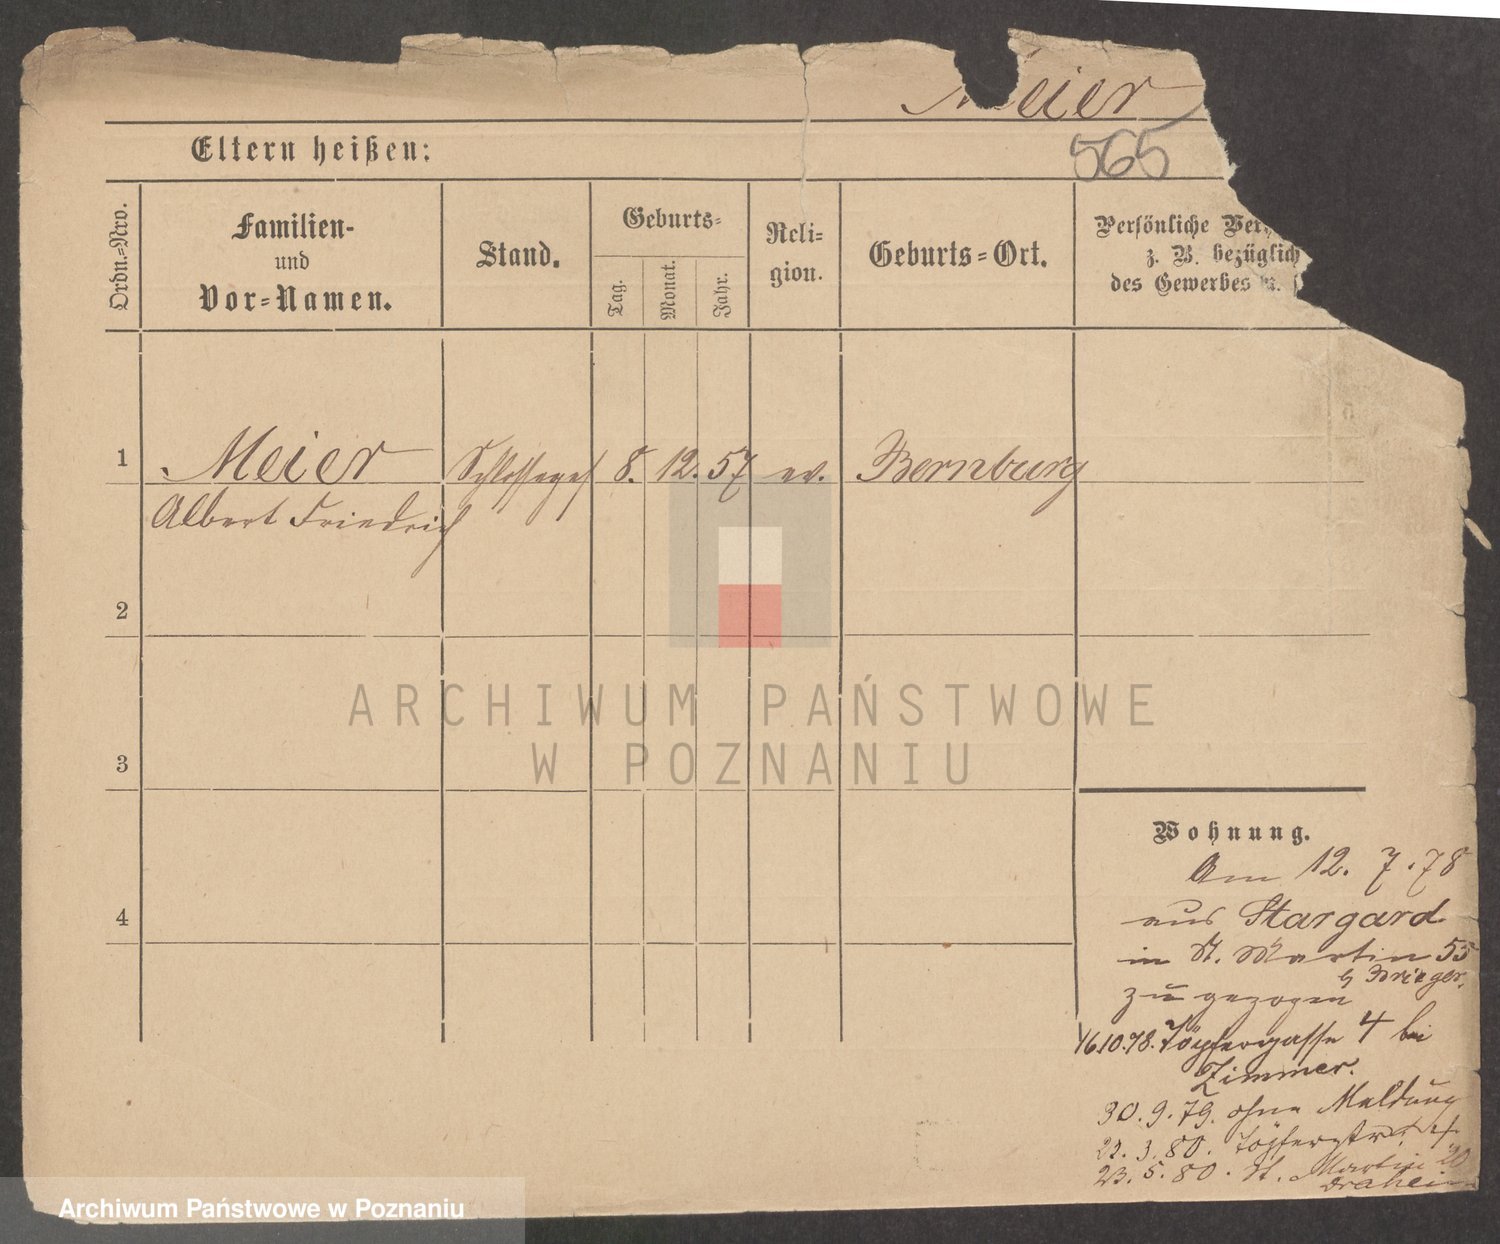 Meier
565
Eltern heißen:
Ordn.-Nro.
Familien-
und
Vor-Namen.
Stand.
Geburts-
Tag.
Monat.
Jahr.
Reli-
gion.
Geburts-Ort.
Persönliche Ver
z. B. bezüglich
des Gewerbes
1 Meier Schlosserges 8. 12. 57 ev. Bernburg
Albert Friedrich
2
3
4
Wohnung.
Am 12. 7. 78
aus Stargard
in St. Martin 55
b Brieger.
zugezogen
16.10.78. Töpfergasse 4 bei
Zimmer.
30. 9. 79. ohne Meldung
22. 3. 80. Töpferstr.
23. 5. 80. St. Martin 20
Draheim
ARCHIWUM PAŃSTWOWE
W POZNANIU
Archiwum Państwowe w Poznaniu